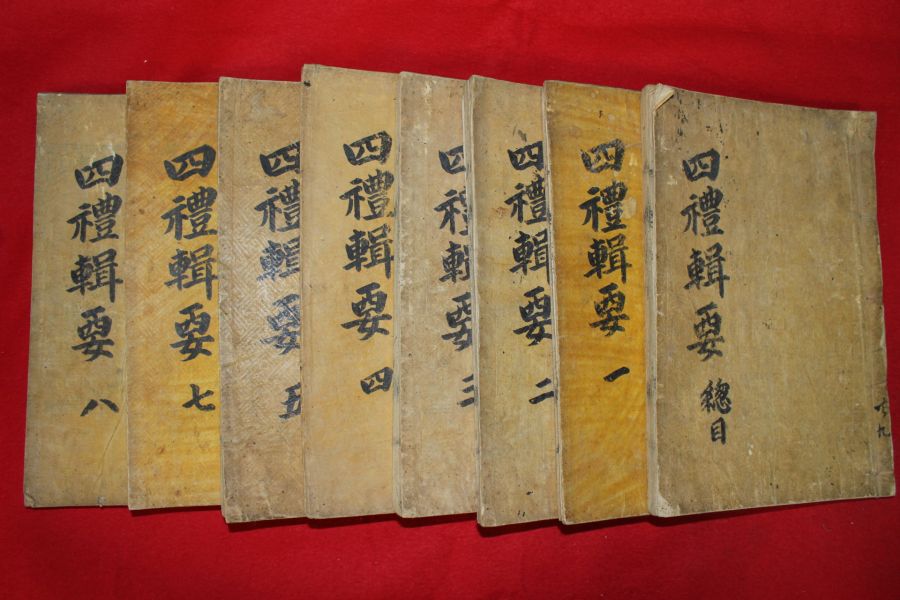 四禮輯要 總目
共九
四禮輯要 一
四禮輯要 二
四禮輯要 三
四禮輯要 四
四禮輯要 五
四禮輯要 七
四禮輯要 八